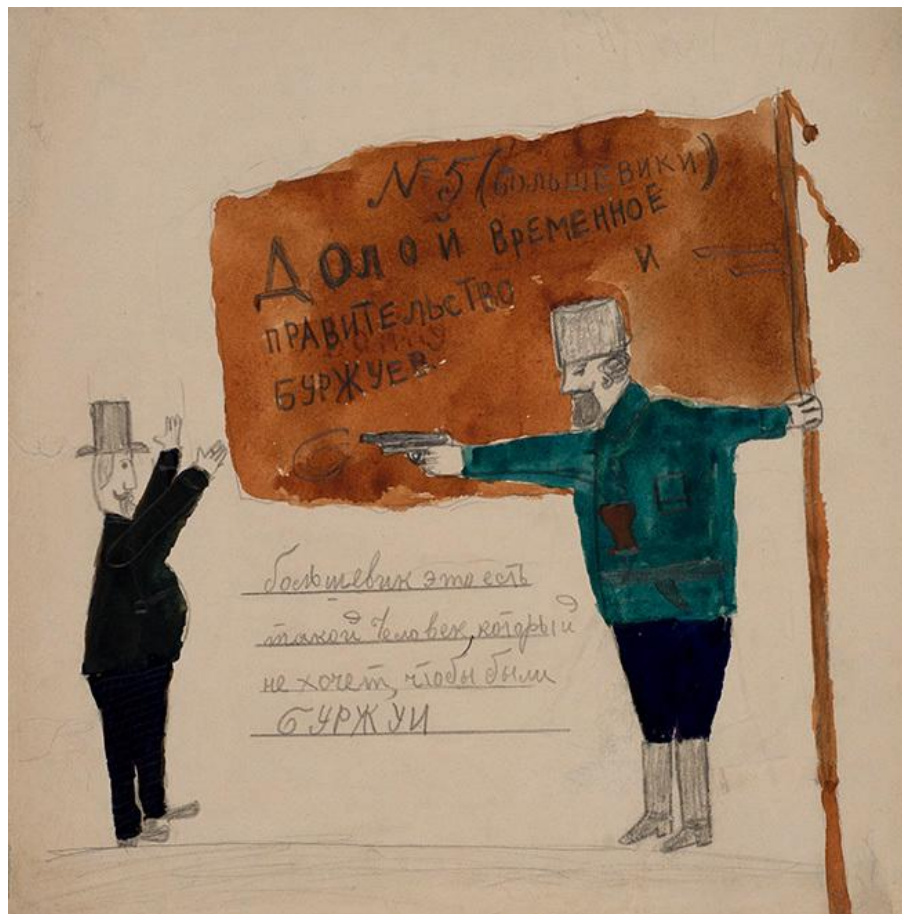 №5 (БОЛЬШЕВИКИ)
ДОЛОЙ ВРЕМЕННОЕ
ПРАВИТЕЛЬСТВО И
БУРЖУЕВ
большевик это есть
такой человек, который
не хочет, чтобы были
БУРЖУИ